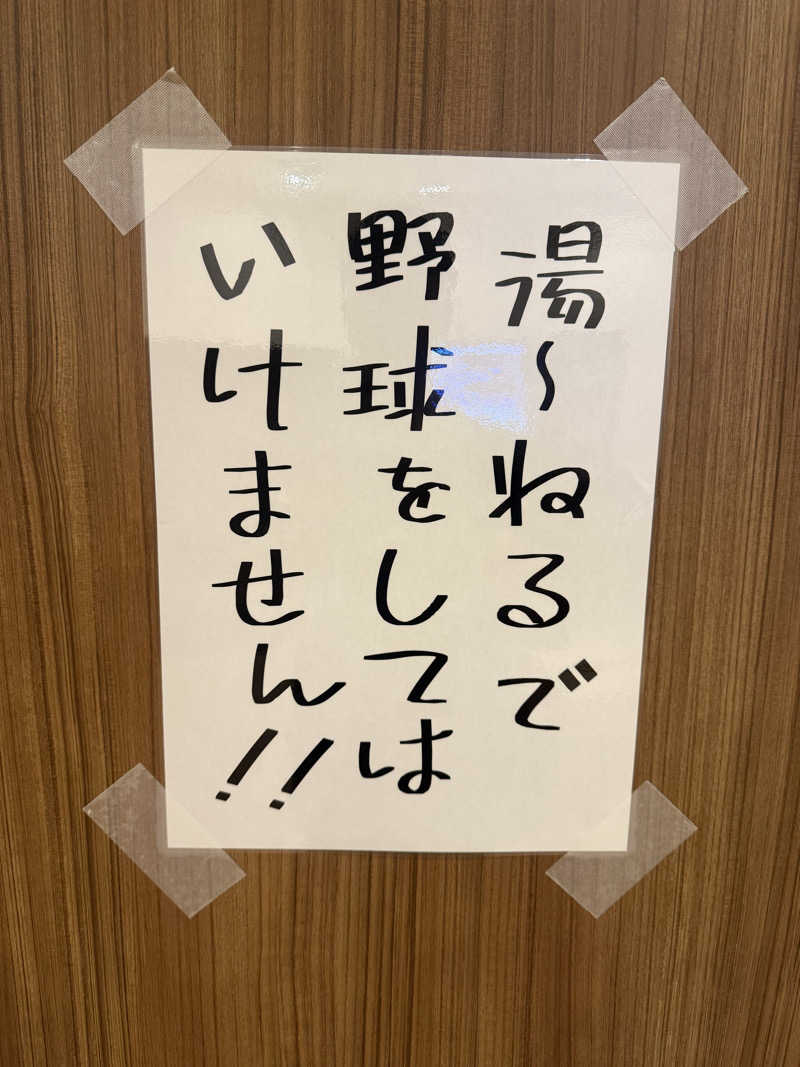 湯〜ねるで
野球をしては
いけません!!